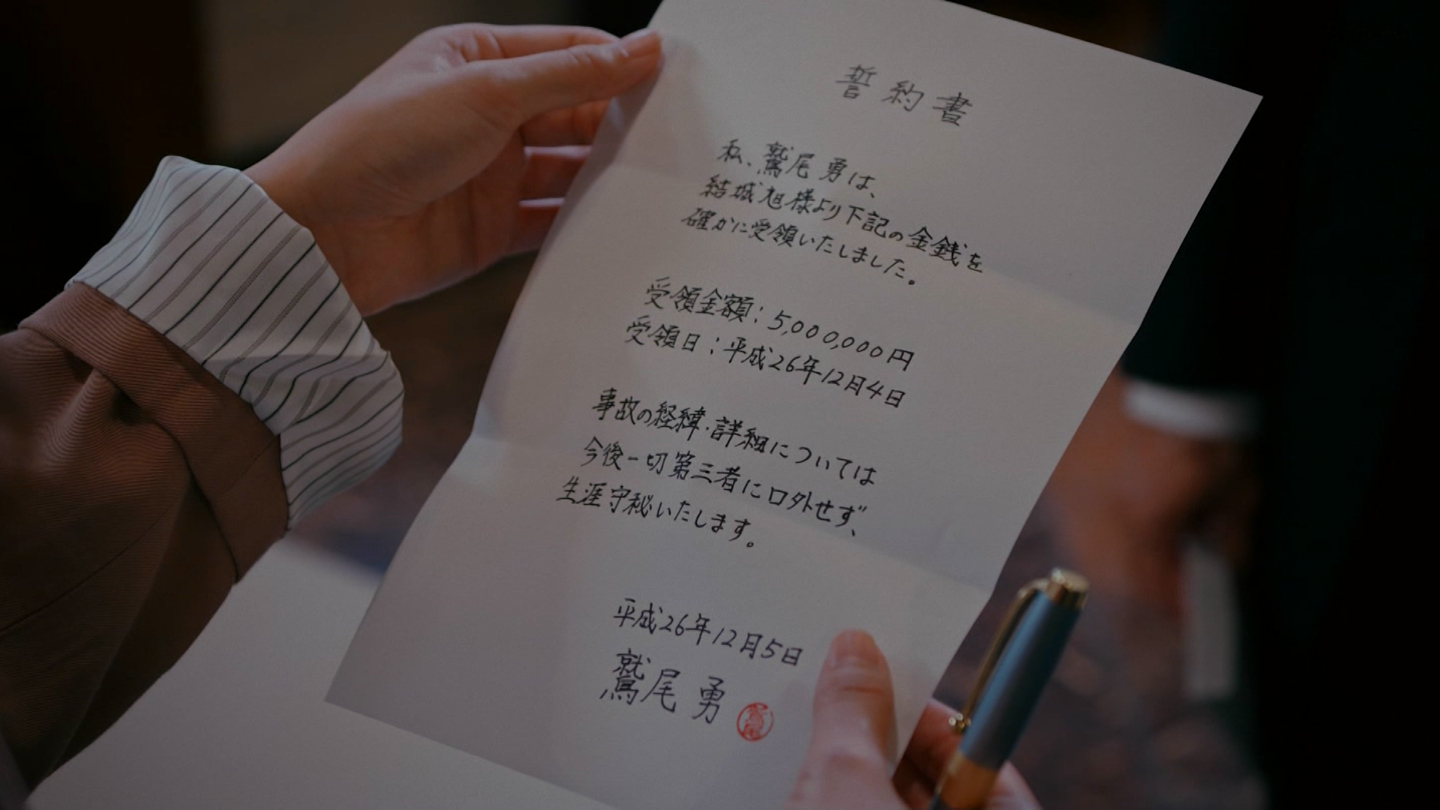 誓約書
私、鷲尾 勇は、
結城旭様より下記の金銭を
確かに受領いたしました。
受領金額:5,000,000円
受領日:平成26年12月4日
事故の経緯・詳細については
今後一切第三者に口外せず、
生涯守秘いたします。
平成26年12月5日
鷲尾 勇